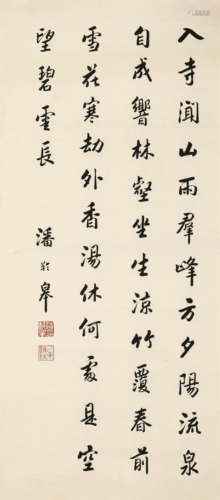 入寺聞山雨羣峰方夕陽流泉
自成響林壑坐生涼竹覆春前
雪花寒劫外香湯休何處是空
望碧雲長
潘齡皋